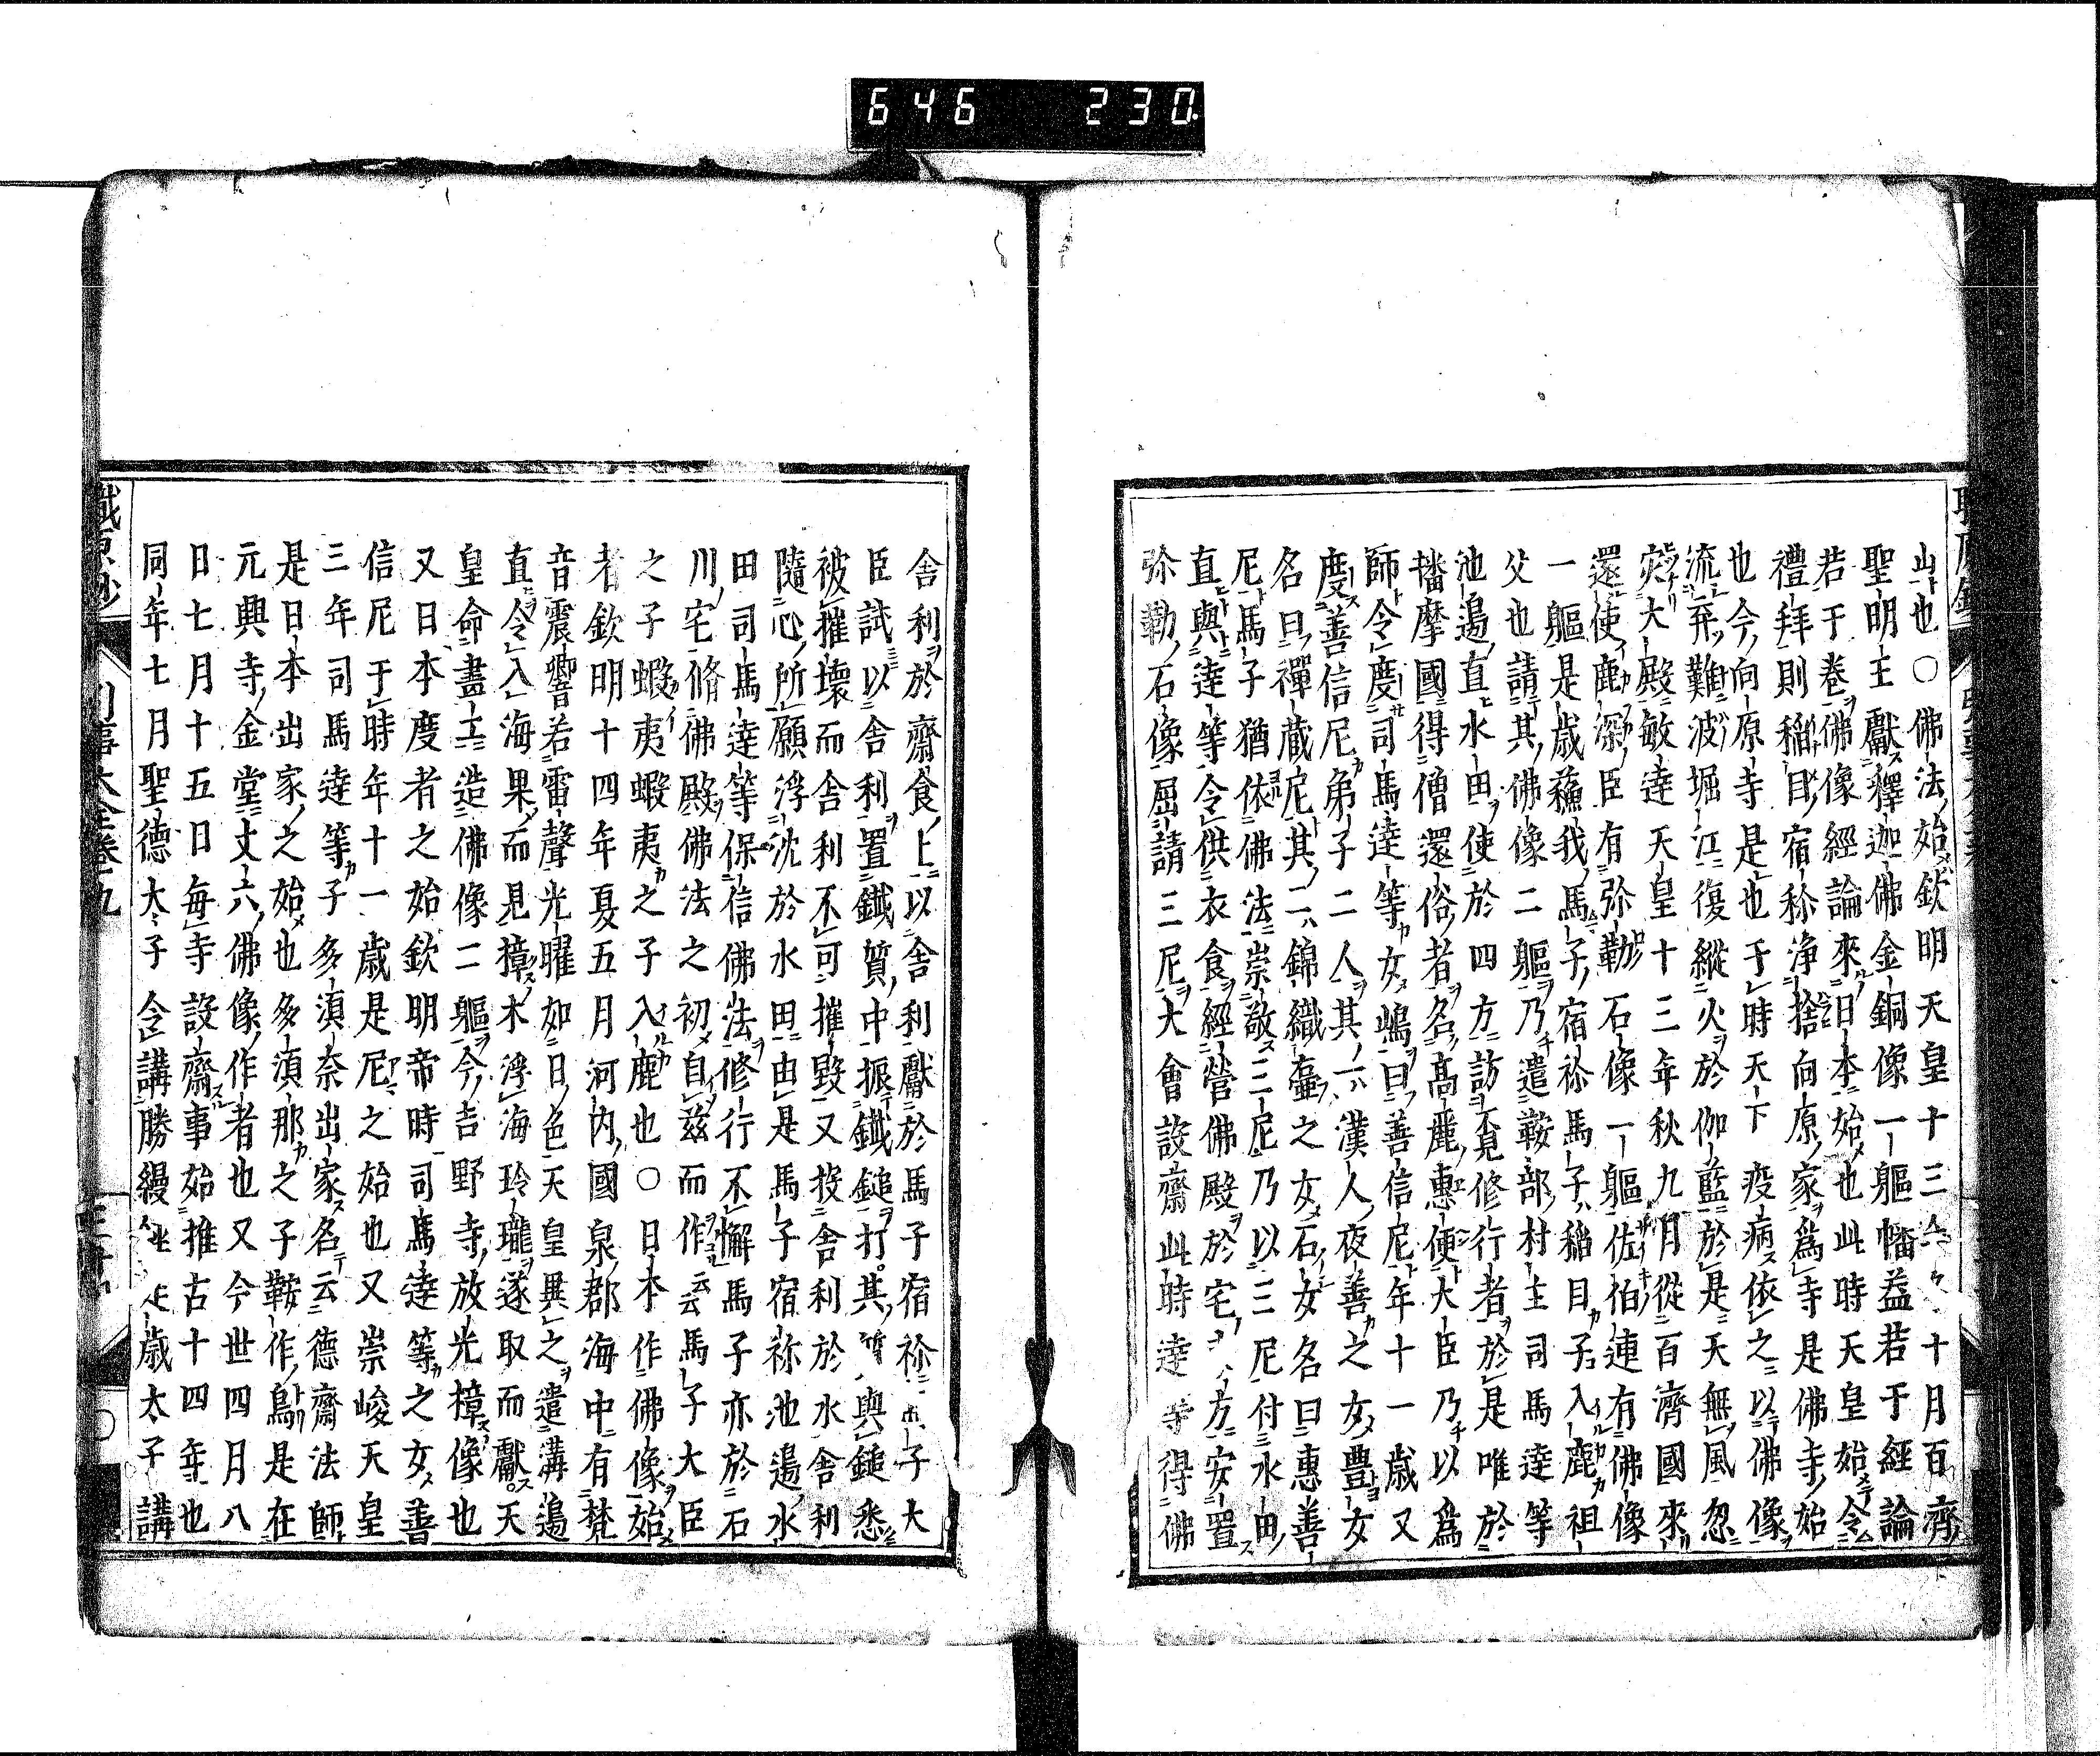 646 230
山也○佛法始欽明天皇十三十月百齊
聖明王獻釋迦佛金銅像一軀幡蓋若于經論
若于卷佛像經論來日本始也此時天皇始令
禮拜則稲目宿祢淨捨向原家爲寺是佛寺始
也今向原寺是也于時天下疫病依之以佛像
流弃難波堀江復縱火於伽藍於是天無風忽
灾大殿敏達天皇十三年秋九月從百濟國來
還使鹿深臣有弥勒石像一軀佐伯連有佛像
一軀是歳蘓我馬子宿祢馬子稲目子入鹿祖
父也請其佛像二軀乃遣鞍部村主司馬達等
池邉直水田使於四方訪覔修行者於是唯於
播摩國得僧還俗者名高麗惠便大臣乃以爲
師令度司馬達等女嶋曰善信尼年十一歳又
度善信尼弟子二人其一漢人夜善之女豊女
名曰禪蔵尼其二錦織壷之女石女名曰惠善
尼馬子猶依佛法崇敬三尼乃以三尼付水田
直與達等令供衣食經營佛殿於宅方安置
弥勒石像屈請三尼大會設齋此時達等得佛
舍利於齋食上以舍利獻於馬子宿祢子大
臣試以舎利置鐡質中振鐡鎚打其質與鎚悉
被摧壊而舎利不可摧毀又投舎利於水舎利
隨心所願浮沈於水田由是馬子宿祢池邉水
田司馬達等保信佛法修行不懈馬子亦於石
川宅脩佛殿佛法之初自茲而作云云馬子大臣
之子蝦夷蝦夷之子入鹿也○日本作佛像始
者欽明十四年夏五月河内國泉郡海中有梵
音震響若雷聲光曜如日色天皇異之遣溝邉
直令入海果而見樟木浮海玲瓏遂取而獻天
皇命畫工造佛像二軀今吉野寺放光樟像也
又日本度者之始欽明帝時司馬達等之女善
信尼于時年十一歳是尼之始也又崇峻天皇
三年司馬達等子多湏奈出家名云德齋法師
是日本出家之始也多湏那之子鞍作鳥是在
元興寺金堂丈六佛像作者也又今世四月八
日七月十五日毎寺設齋事始推古十四年也
同年七月聖德太子令講勝縵歳太子講